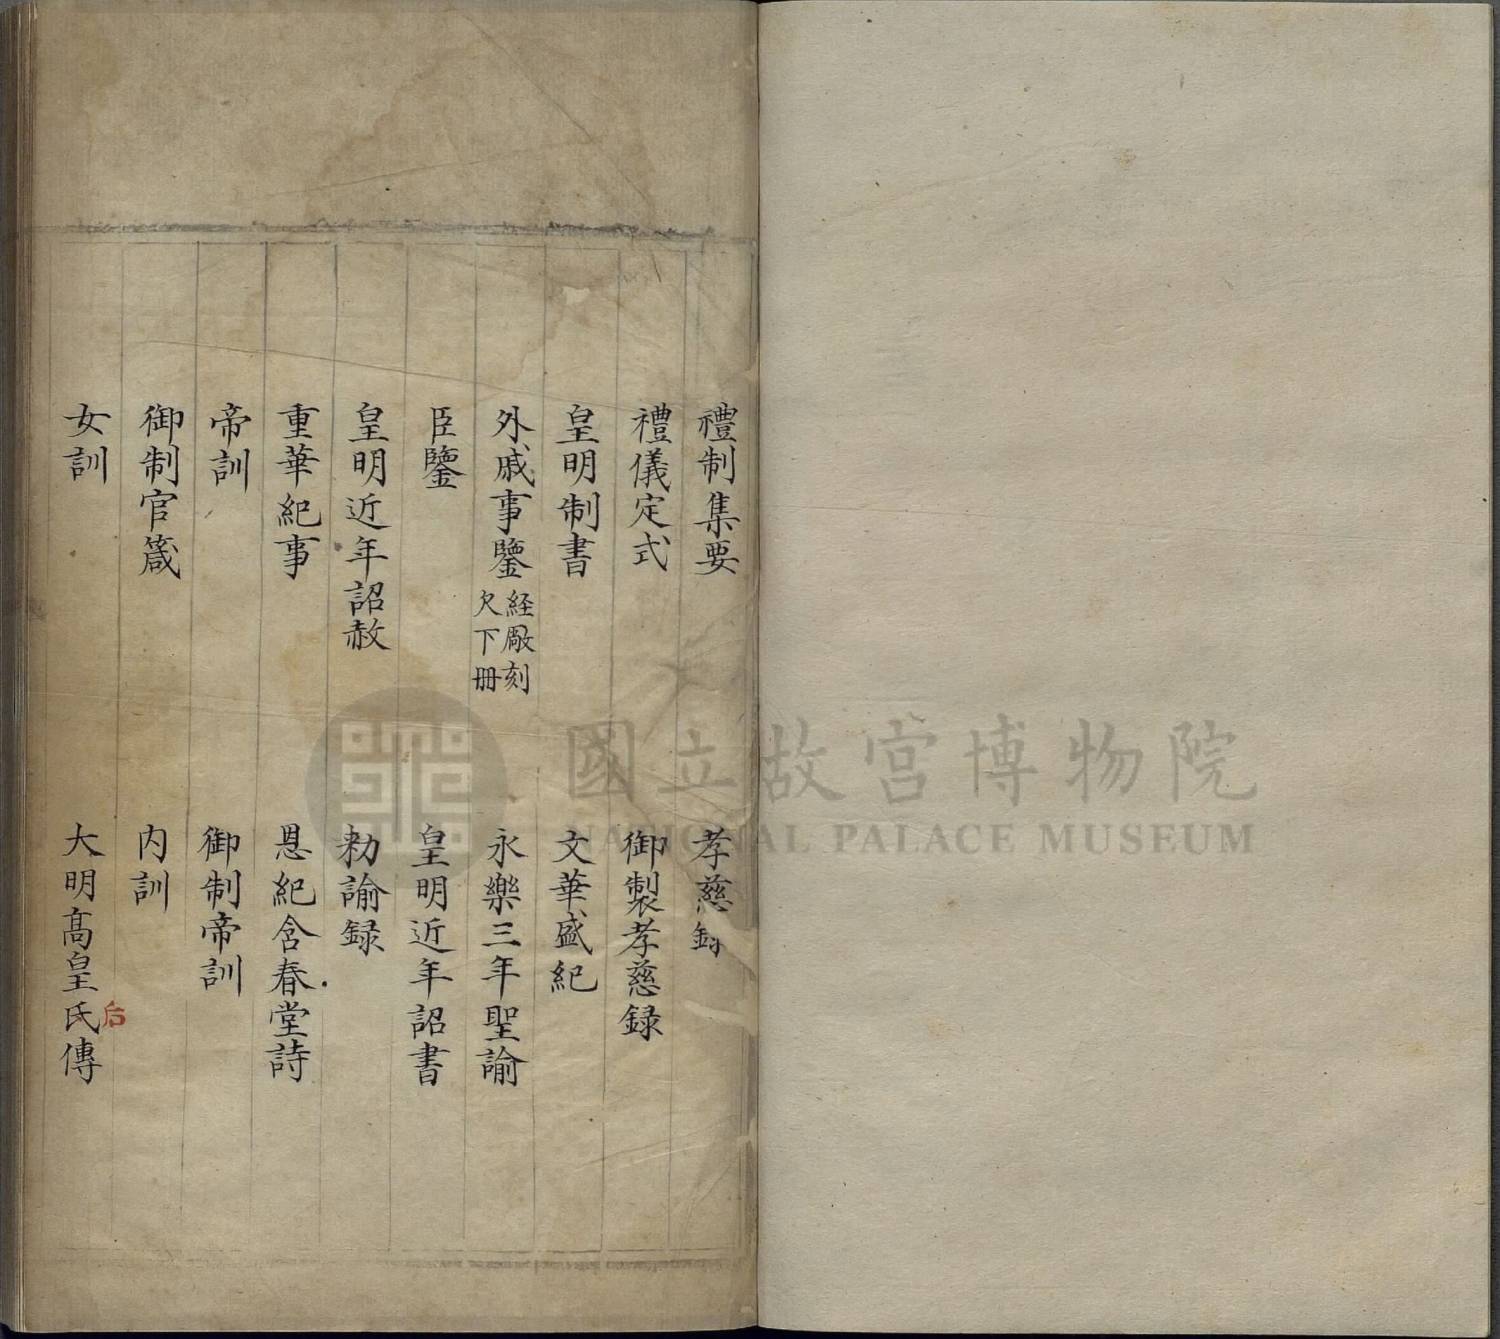 禮制集要　孝慈録
禮儀定式　御製孝慈録
皇明制書　文華盛紀
外戚事鑒 経厰刻 欠下冊　永樂三年聖諭
臣鑒　皇明近年詔書
皇明近年詔赦　勅諭録
重華紀事　恩紀含春堂詩
帝訓　御制帝訓
御制官箴　内訓
女訓　大明髙皇氏傳
后
國立故宮博物院
NATIONAL PALACE MUSEUM